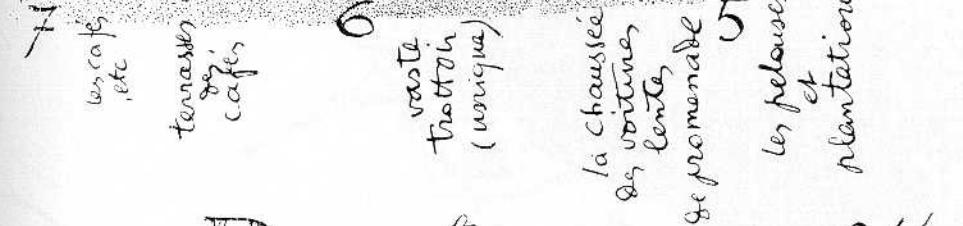 7
les cafés
, etc
terrasses
des
cafés
6
vaste
trottoir
(unique)
la chaussée
des voitures
lentes
de promenade
5
les pelouses
et
plantations